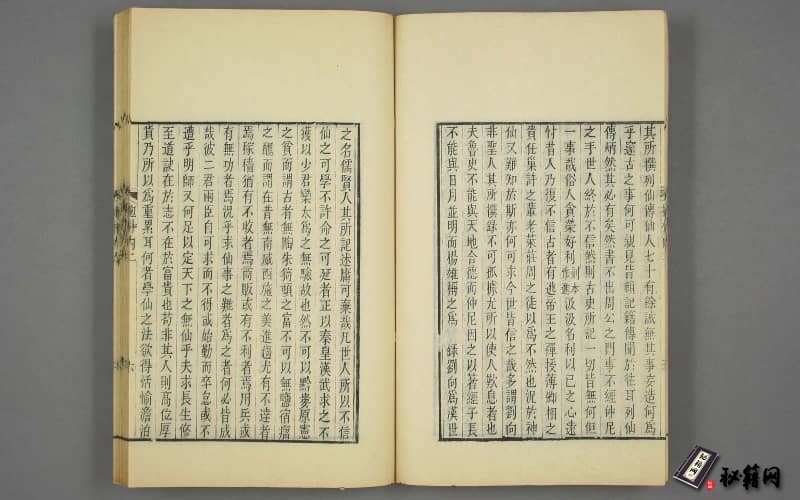 其所撰列仙傳仙人七十有餘誠無其事妄造何爲
乎邃古之事何可親見皆賴記籍傳聞於往耳列仙
傳炳然其必有矣然書不出周公之門事不經仲尼
之手世人終於不信然則古史所記一切皆無何但
一事哉俗人貪榮好利刻本作進汲汲名利以己之心遠
忖昔人乃復不信古者有逃帝王之禪授薄卿相之
貴任巢許之輩老萊莊周之徒以爲不然也況於神
仙又難知於斯亦何可求今世皆信之哉多謂劉向
非聖人其所撰錄不可孤據尤所以使人歎息者也
夫魯史不能與天地合德而仲尼因之以著經子長
不能與日月並明而揚雄稱之爲 錄劉向爲漢世
之名儒賢人其所記述庸可棄哉凡世人所以不信
仙之可學不許命之可延者正以秦皇漢武求之不
獲以少君欒太爲之無驗故也然不可以黔婁原憲
之貧而謂古者無陶朱猗頓之富不可以無鹽宿瘤
之醜而謂在昔無南威西施之美進趨尤有不達者
焉稼穡猶有不收者焉商販或有不利者焉用兵或
有無功者焉況乎求仙事之難者爲之者何必皆成
哉彼二君兩臣自可求而不得或始勤而卒怠或不
遭乎明師又何足以定天下之無仙乎夫求長生修
至道訣在於志不在於富貴也苟非其人則高位厚
貨乃所以爲重累耳何者學仙之法欲得活愉澹泊
秘籍网
秘籍网